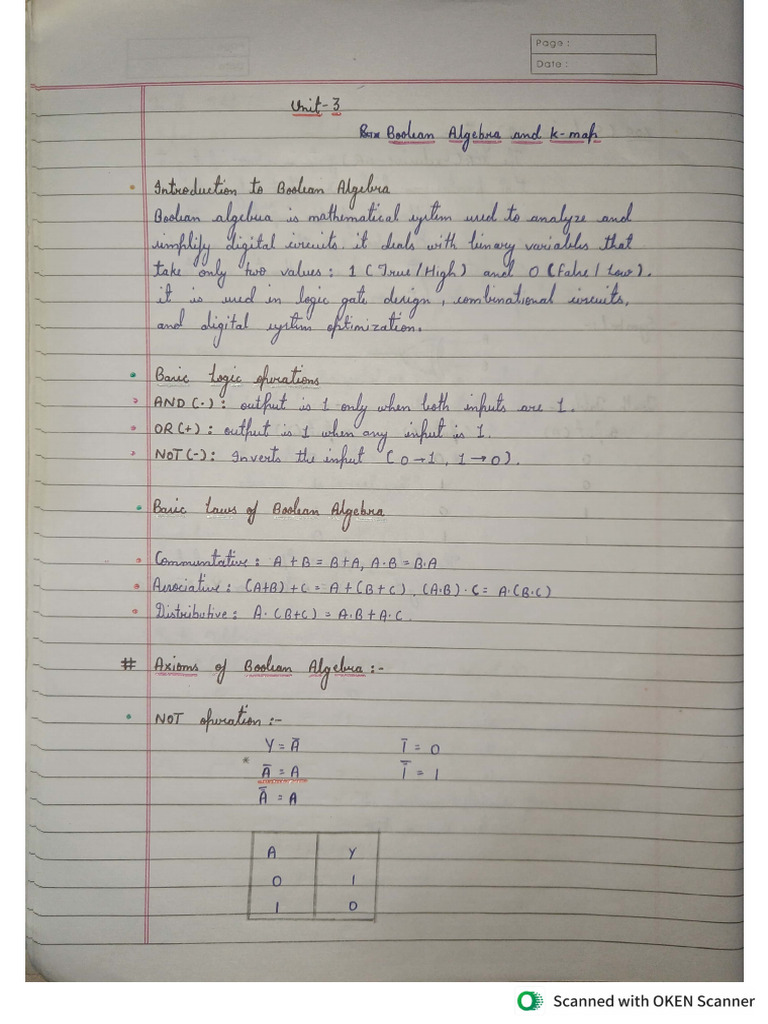 Page :
Date :
Unit-3
Boolean Algebra and k-map
• Introduction to Boolean Algebra
Boolean algebra is mathematical system used to analyze and
simplify digital circuits. it deals with binary variables that
take only two values: 1 (True/High) and 0 (False/Low).
it is used in logic gate design, combinational circuits,
and digital system optimization.
• Basic Logic operations
• AND (·): output is 1 only when both inputs are 1.
• OR (+): output is 1 when any input is 1.
• NOT (-): Inverts the input (0→1, 1→0).
• Basic Laws of Boolean Algebra
• Communtative: A+B = B+A, A·B = B·A
• Associative: (A+B)+C = A+(B+C), (A·B)·C = A·(B·C)
• Distributive: A·(B+C) = A·B+A·C.
# Axioms of Boolean Algebra:-
• NOT operation:-
Y = A̅ 1̅ = 0
* A̿ = A 1̿ = 1
A̿ = A
A Y
0 1
1 0
Scanned with OKEN Scanner